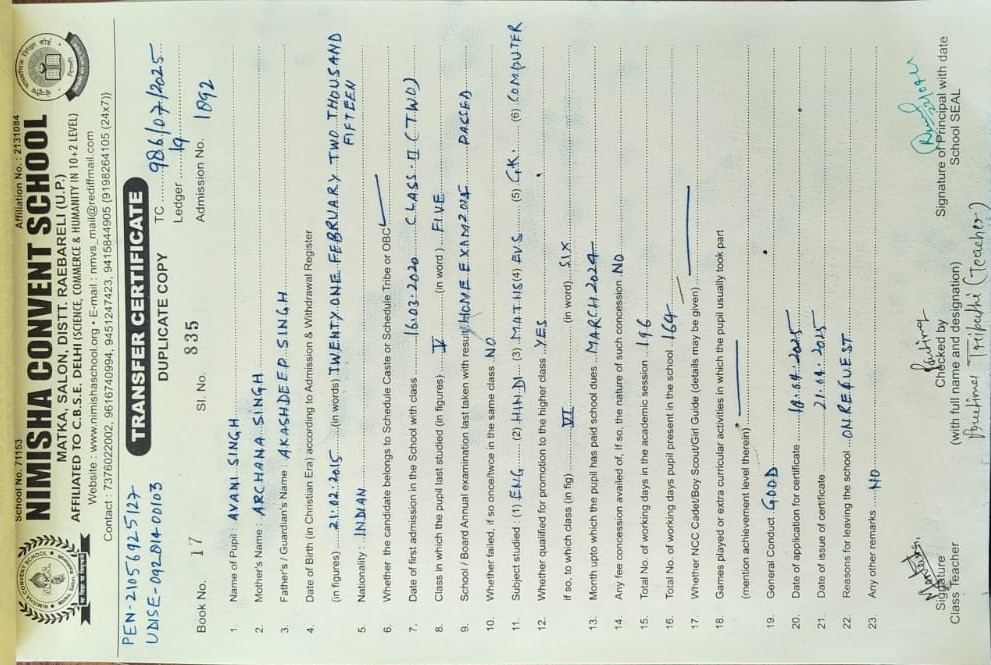 School No.: 71153 Affiliation No.: 2131084
NIMISHA CONVENT SCHOOL
MATKA, SALON, DISTT. RAEBARELI (U.P.)
AFFILIATED TO C.B.S.E. DELHI (SCIENCE, COMMERCE & HUMANITY IN 10+2 LEVEL)
Website : www.nimishaschool.org • E-mail : nmvs_mail@rediffmail.com
Contact : 7376022002, 9616740994, 9451247423, 9415844905 (9198264105 (24x7))
PEN-21056925127
UDISE-09281400103
TRANSFER CERTIFICATE
DUPLICATE COPY
TC 986/07/2025
Ledger 19
Book No. 17 Sl. No. 835 Admission No. 1892
1. Name of Pupil : AVANI SINGH
2. Mother's Name : ARCHANA SINGH
3. Father's / Guardian's Name : AKASHDEEP SINGH
4. Date of Birth (in Christian Era) according to Admission & Withdrawal Register
(in figures) 21.02.2015 (in words) TWENTY ONE FEBRUARY TWO THOUSAND
FIFTEEN
5. Nationality : INDIAN
6. Whether the candidate belongs to Schedule Caste or Schedule Tribe or OBC
7. Date of first admission in the School with class 16.03.2020 CLASS-II (TWO)
8. Class in which the pupil last studied (in figures) V (in word) FIVE
9. School / Board Annual examination last taken with result HOME EXAM PASSED
10. Whether failed, if so once/twce in the same class NO
11. Subject studied : (1) ENG (2) HINDI (3) MATHS (4) EVS (5) G.K. (6) COMPUTER
12. Whether qualified for promotion to the higher class YES
if so, to which class (in fig) VI (in word) SIX
13. Month upto which the pupil has paid school dues MARCH 2024
14. Any fee concession availed of, If so, the nature of such concession NO
15. Total No. of working days in the academic session 196
16. Total No. of working days pupil present in the school 164
17. Whether NCC Cadet/Boy Scout/Girl Guide (details may be given)
18. Games played or extra curricular activities in which the pupil usually took part
(mention achievement level therein)
19. General Conduct GOOD
20. Date of application for certificate 18.04.2025
21. Date of issue of certificate 21.04.2025
22. Reasons for leaving the school ON REQUEST
23. Any other remarks NO
Signature
Class Teacher
Checked by
(with full name and designation)
Tripathi (Teacher)
Signature of Principal with date
School SEAL